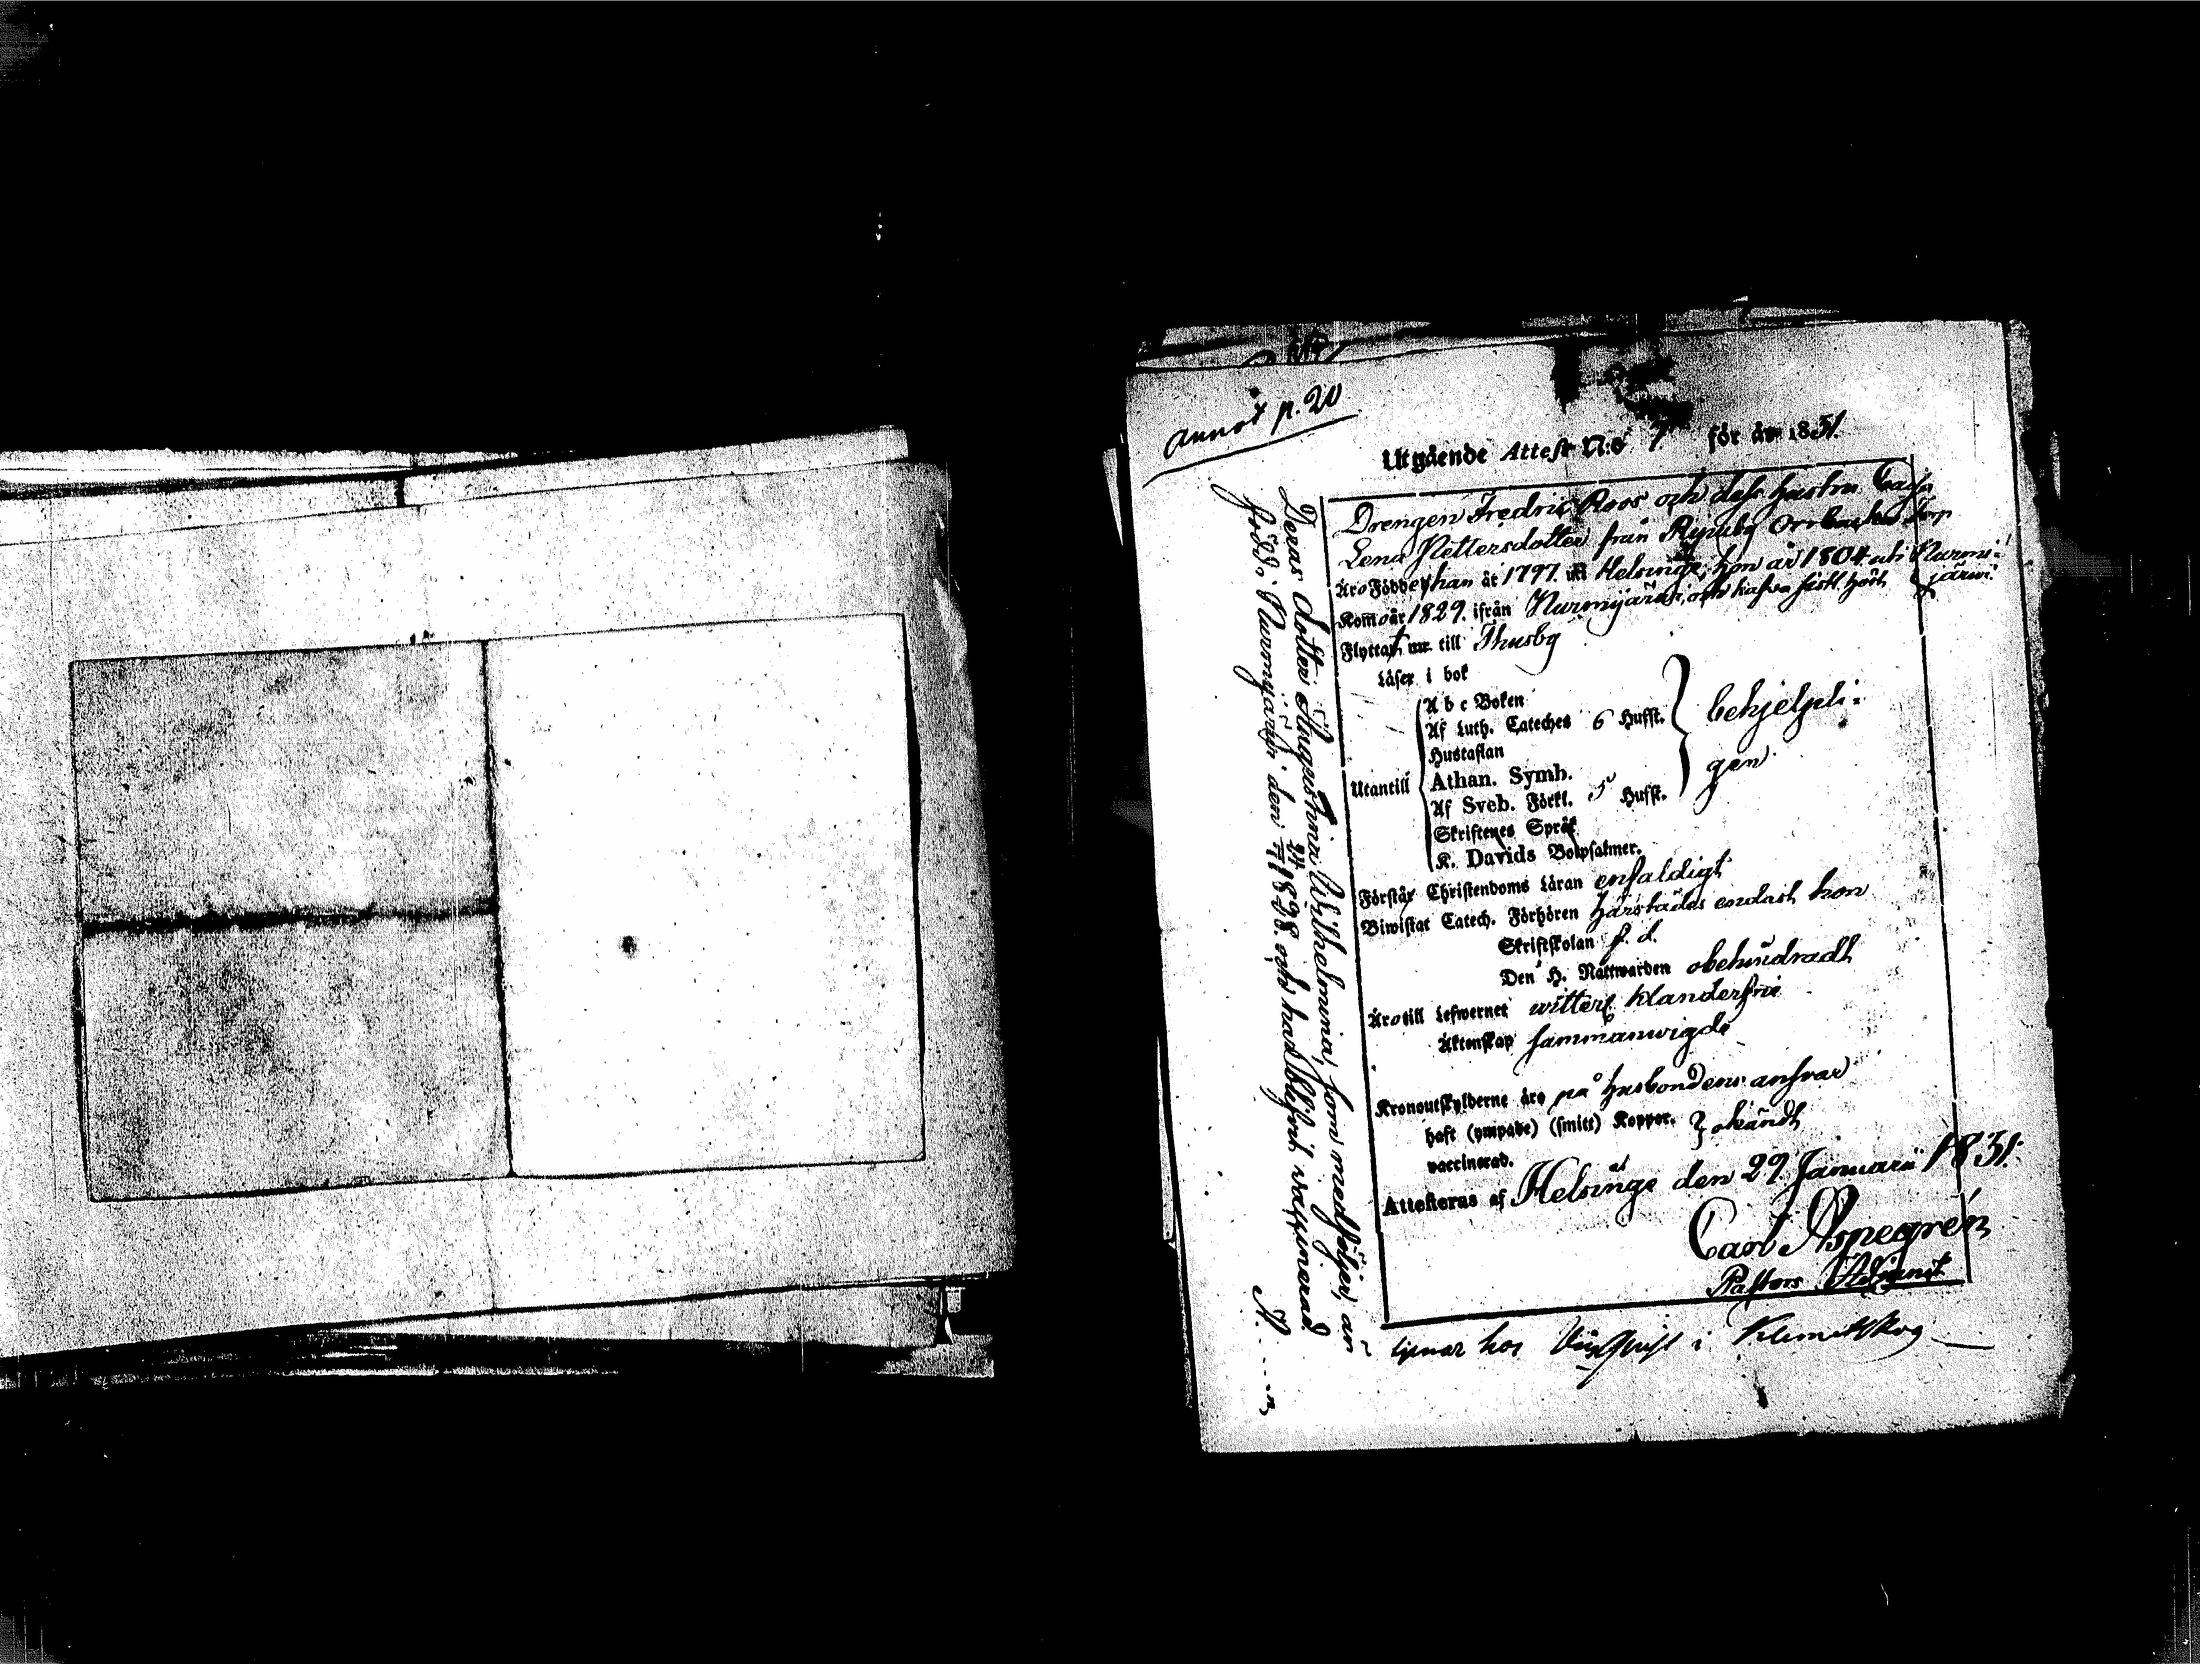 annot p. 20
Utgående Attest N:o 7 för år 1831.
Drengen Fredric Roos och dess hustru Cajsa
Lena Pettersdotter från Torp
Äro Födde, han år 1797. uti Helsinge, hon år 1804 uti Nurmi=
järwi.
Kom̄o år 1829. ifrån Nurmijärwi, och hafwa sistl höst
Flyttat till Thusby
Läser i bok
A b c Boken
Af Luth. Cateches 6 Hufst.
behjelpli=
gen
Hustaflan
Utantill
Athan. Symb.
Af Sveb. Förkl. 5 Hufst.
Skriftenes Språk
K. Davids Botpsalmer.
Förstår Christendoms Läran enfaldigt
Biwistat Catech. Förhören härstädes endast hon
Skriftskolan s. d.
Den H. Nattwarden obehindradt
Äro till Lefwernet witterl. klanderfrie
Äktenskap sammanwigde
Kronoutskylderne äro på husbondens answar
haft (ympade) (smitt) Koppor.
okändt
vaccinerad.
Attesteras af Helsinge den 29 Januarii 1831.
Carl Aspegrén
Pastors Adjunct
tjenar hos i Klemetskog
Deras dotter Augustina Wilhelmina, som medföljer, är
född i Nurmijärwi den 1828. och har blifwit waccinerad